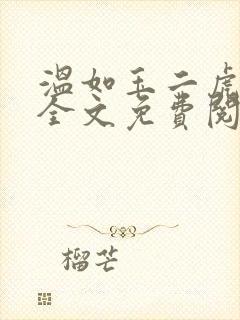 温如玉二虎
全文免费阅
榴芒